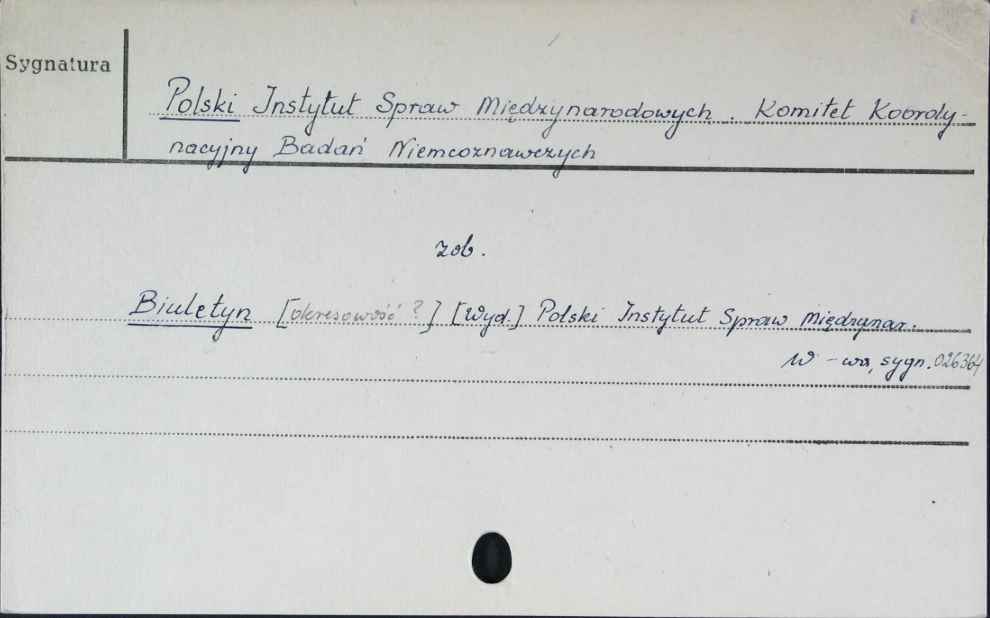 Sygnatura
Polski Instytut Spraw Międzynarodowych. Komitet Koordy-
nacyjny Badań Niemcoznawczych
zob.
Biuletyn [okresowość?] [Wyd.] Polski Instytut Spraw Międzynar.
W-wa, sygn. 026364